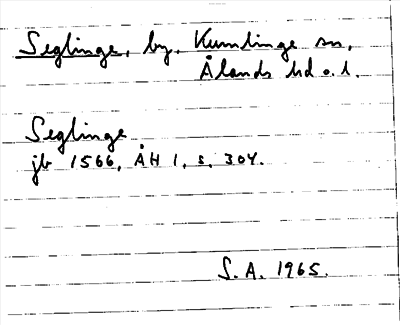 Seglinge, by, Kumlinge sn,
Ålands hd o. l.
Seglinge
jb 1566, ÅH 1, s. 304.
S. A. 1965.